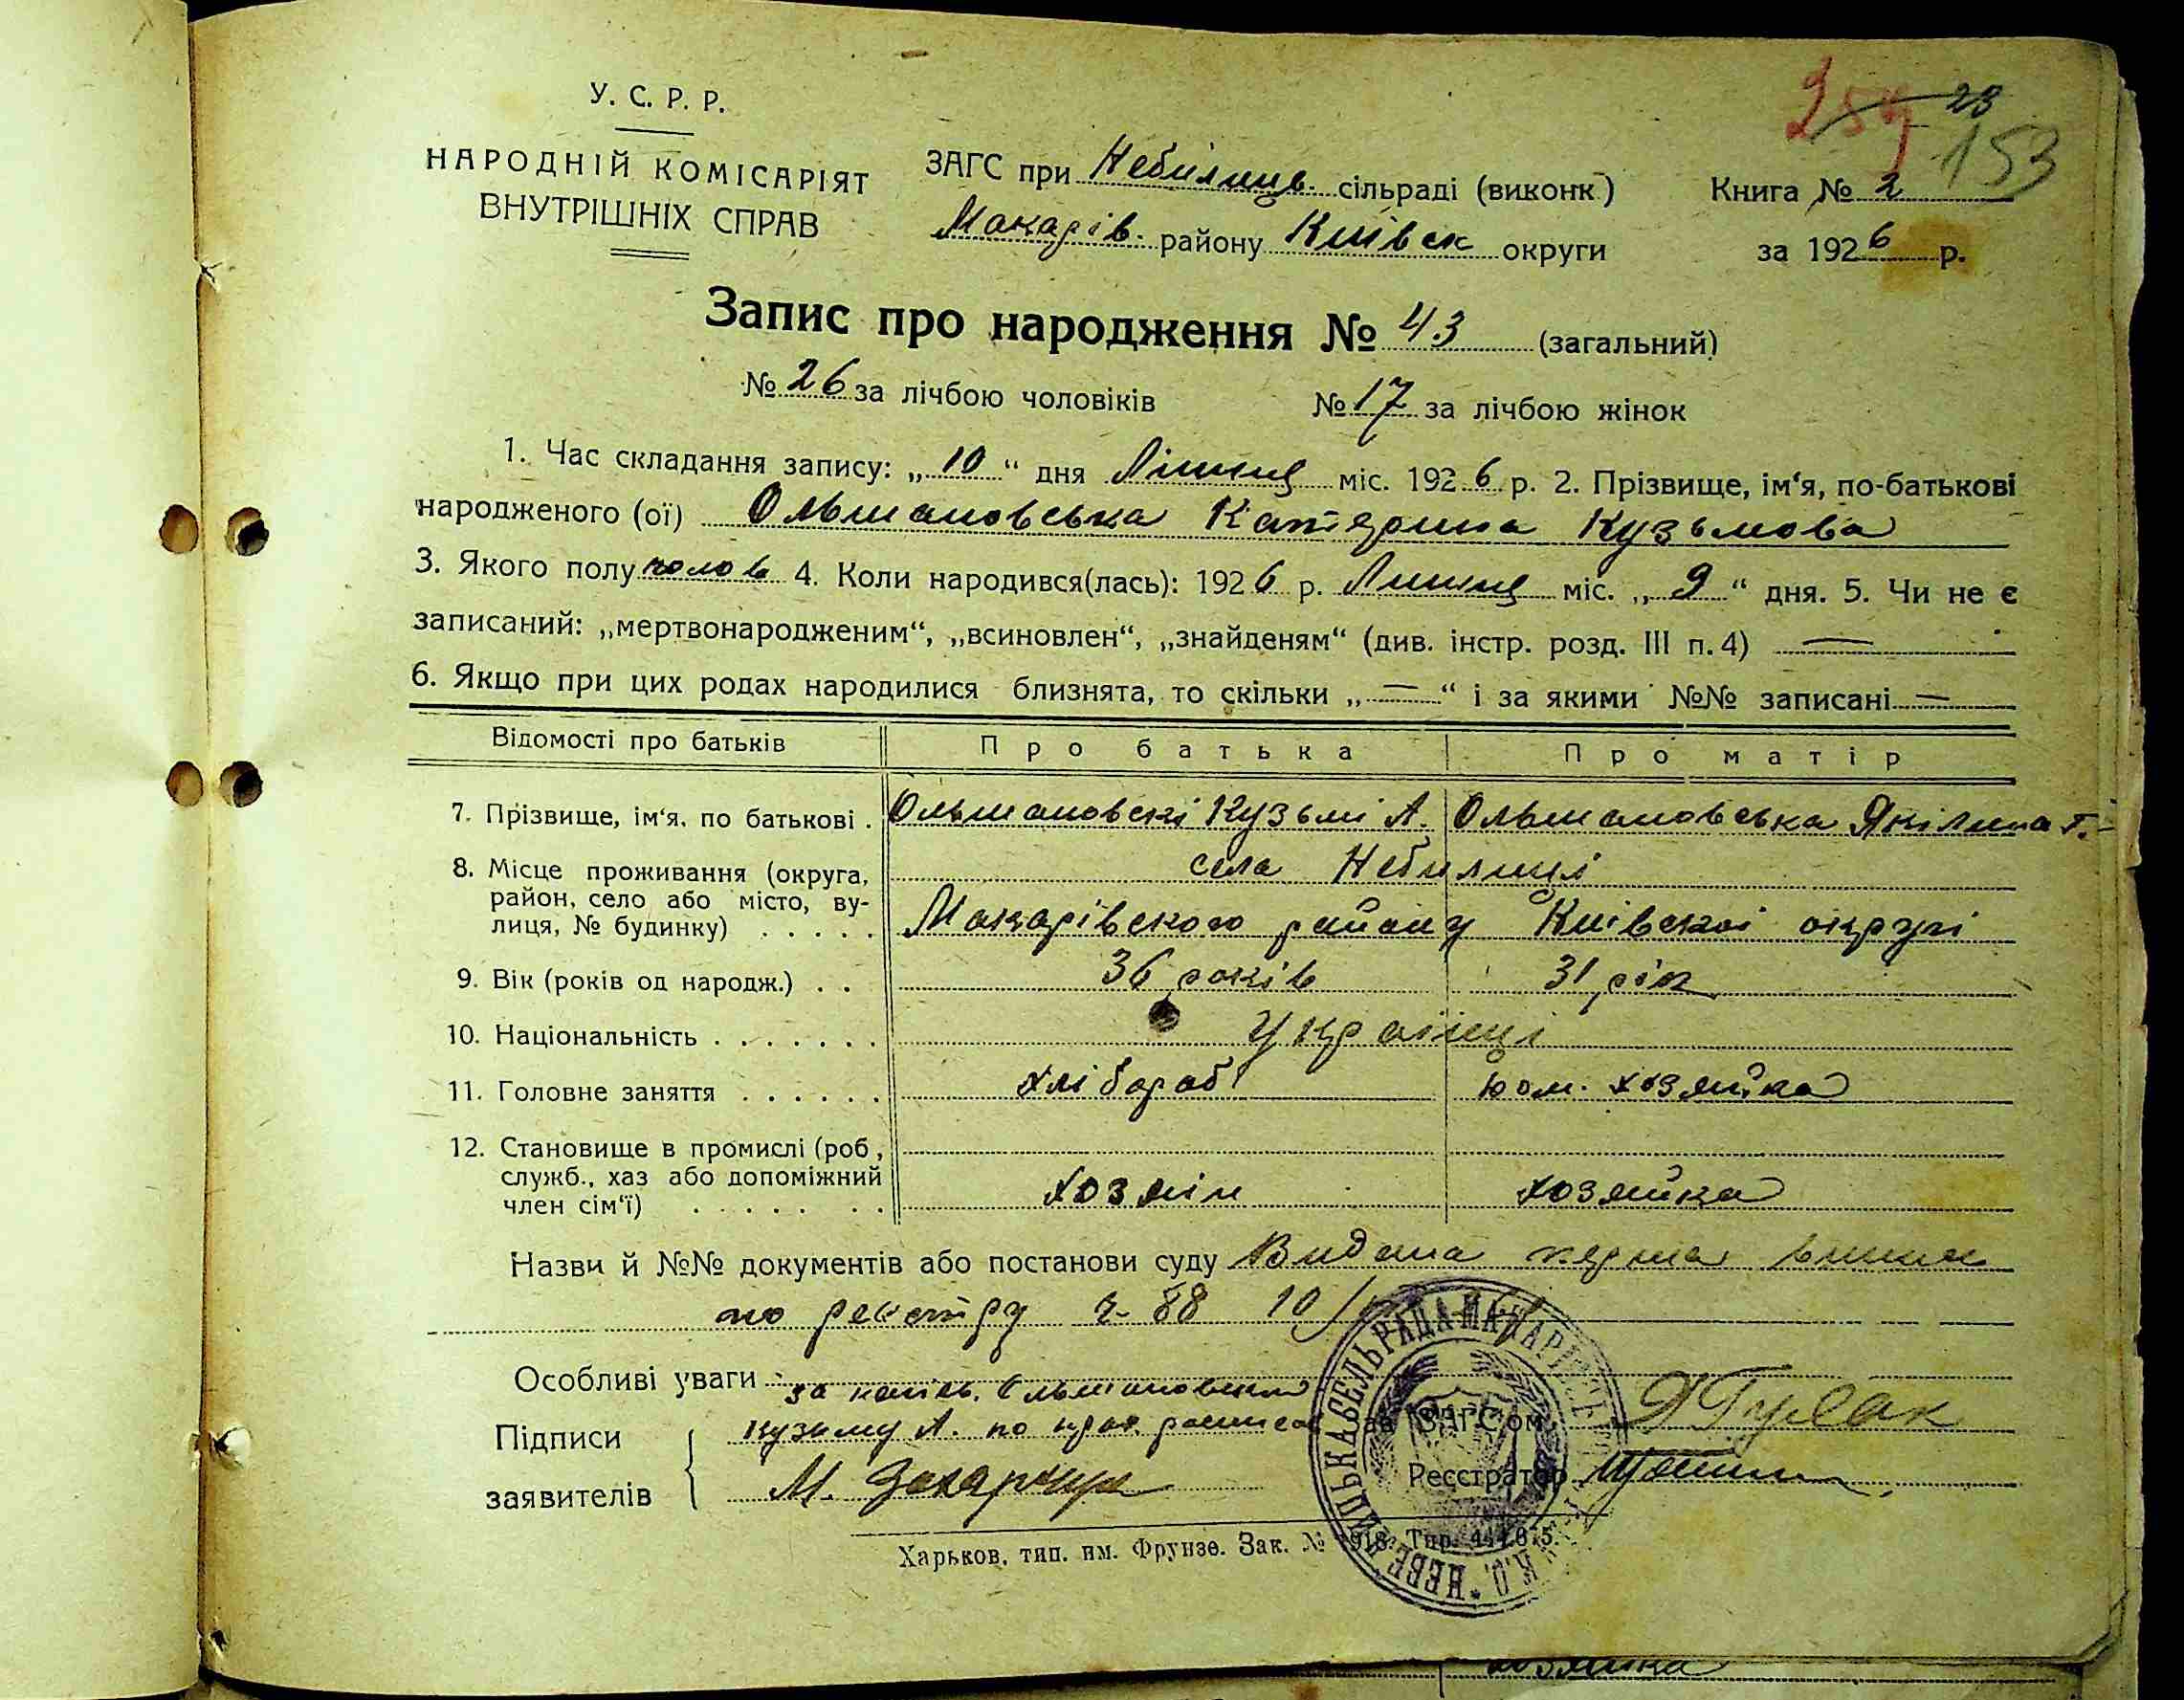 254 23
153
У. С. Р. Р.
НАРОДНІЙ КОМІСАРІЯТ
ВНУТРІШНІХ СПРАВ
ЗАГС при Небилиць. сільраді (виконк)
Макарів. району Київськ округи
Книга № 2
за 1926 р.
Запис про народження № 43 (загальний)
№ 26 за лічбою чоловіків № 17 за лічбою жінок
1. Час складання запису: „10“ дня Липця міс. 1926 р. 2. Прізвище, ім‘я, по-батькові
народженого (ої) Ольшановська Катерина Кузьмова
3. Якого полу чолов 4. Коли народився(лась): 1926 р. Липця міс. „9“ дня. 5. Чи не є
записаний: „мертвонародженим“, „всиновлен“, „знайденям“ (див. інстр. розд. III п. 4) —
6. Якщо при цих родах народилися близнята, то скільки „—“ і за якими №№ записані —
Відомості про батьків Про батька Про матір
7. Прізвище, ім‘я, по батькові . Ольшановскі Кузьмі А. Ольшановська Якілина Т.
8. Місце проживання (округа, район, село або місто, ву-лиця, № будинку) . . . . .
села Небилиці
Макарівского району Київскоі округі
9. Вік (років од народж.) . . 36 років 31 рік
10. Національність . . . . . . . Українці
11. Головне заняття . . . . . . хлібороб дом. хозяйка
12. Становище в промислі (роб, служб., хаз або допоміжний член сім‘ї) . . . . . . .
хозяін хозяйка
Назви й №№ документів або постанови суду Видана перша випис
по реєстру ч- 88 10/
Особливі уваги за Ольшановский
Підписи
заявителів
Кузьму А. по
М. Захарчук
Зав ЗАГСом
Реєстратор
Харьков, тип. им. Фрунзе. Зак. № 918. Тир. 444.675.
хозяйка